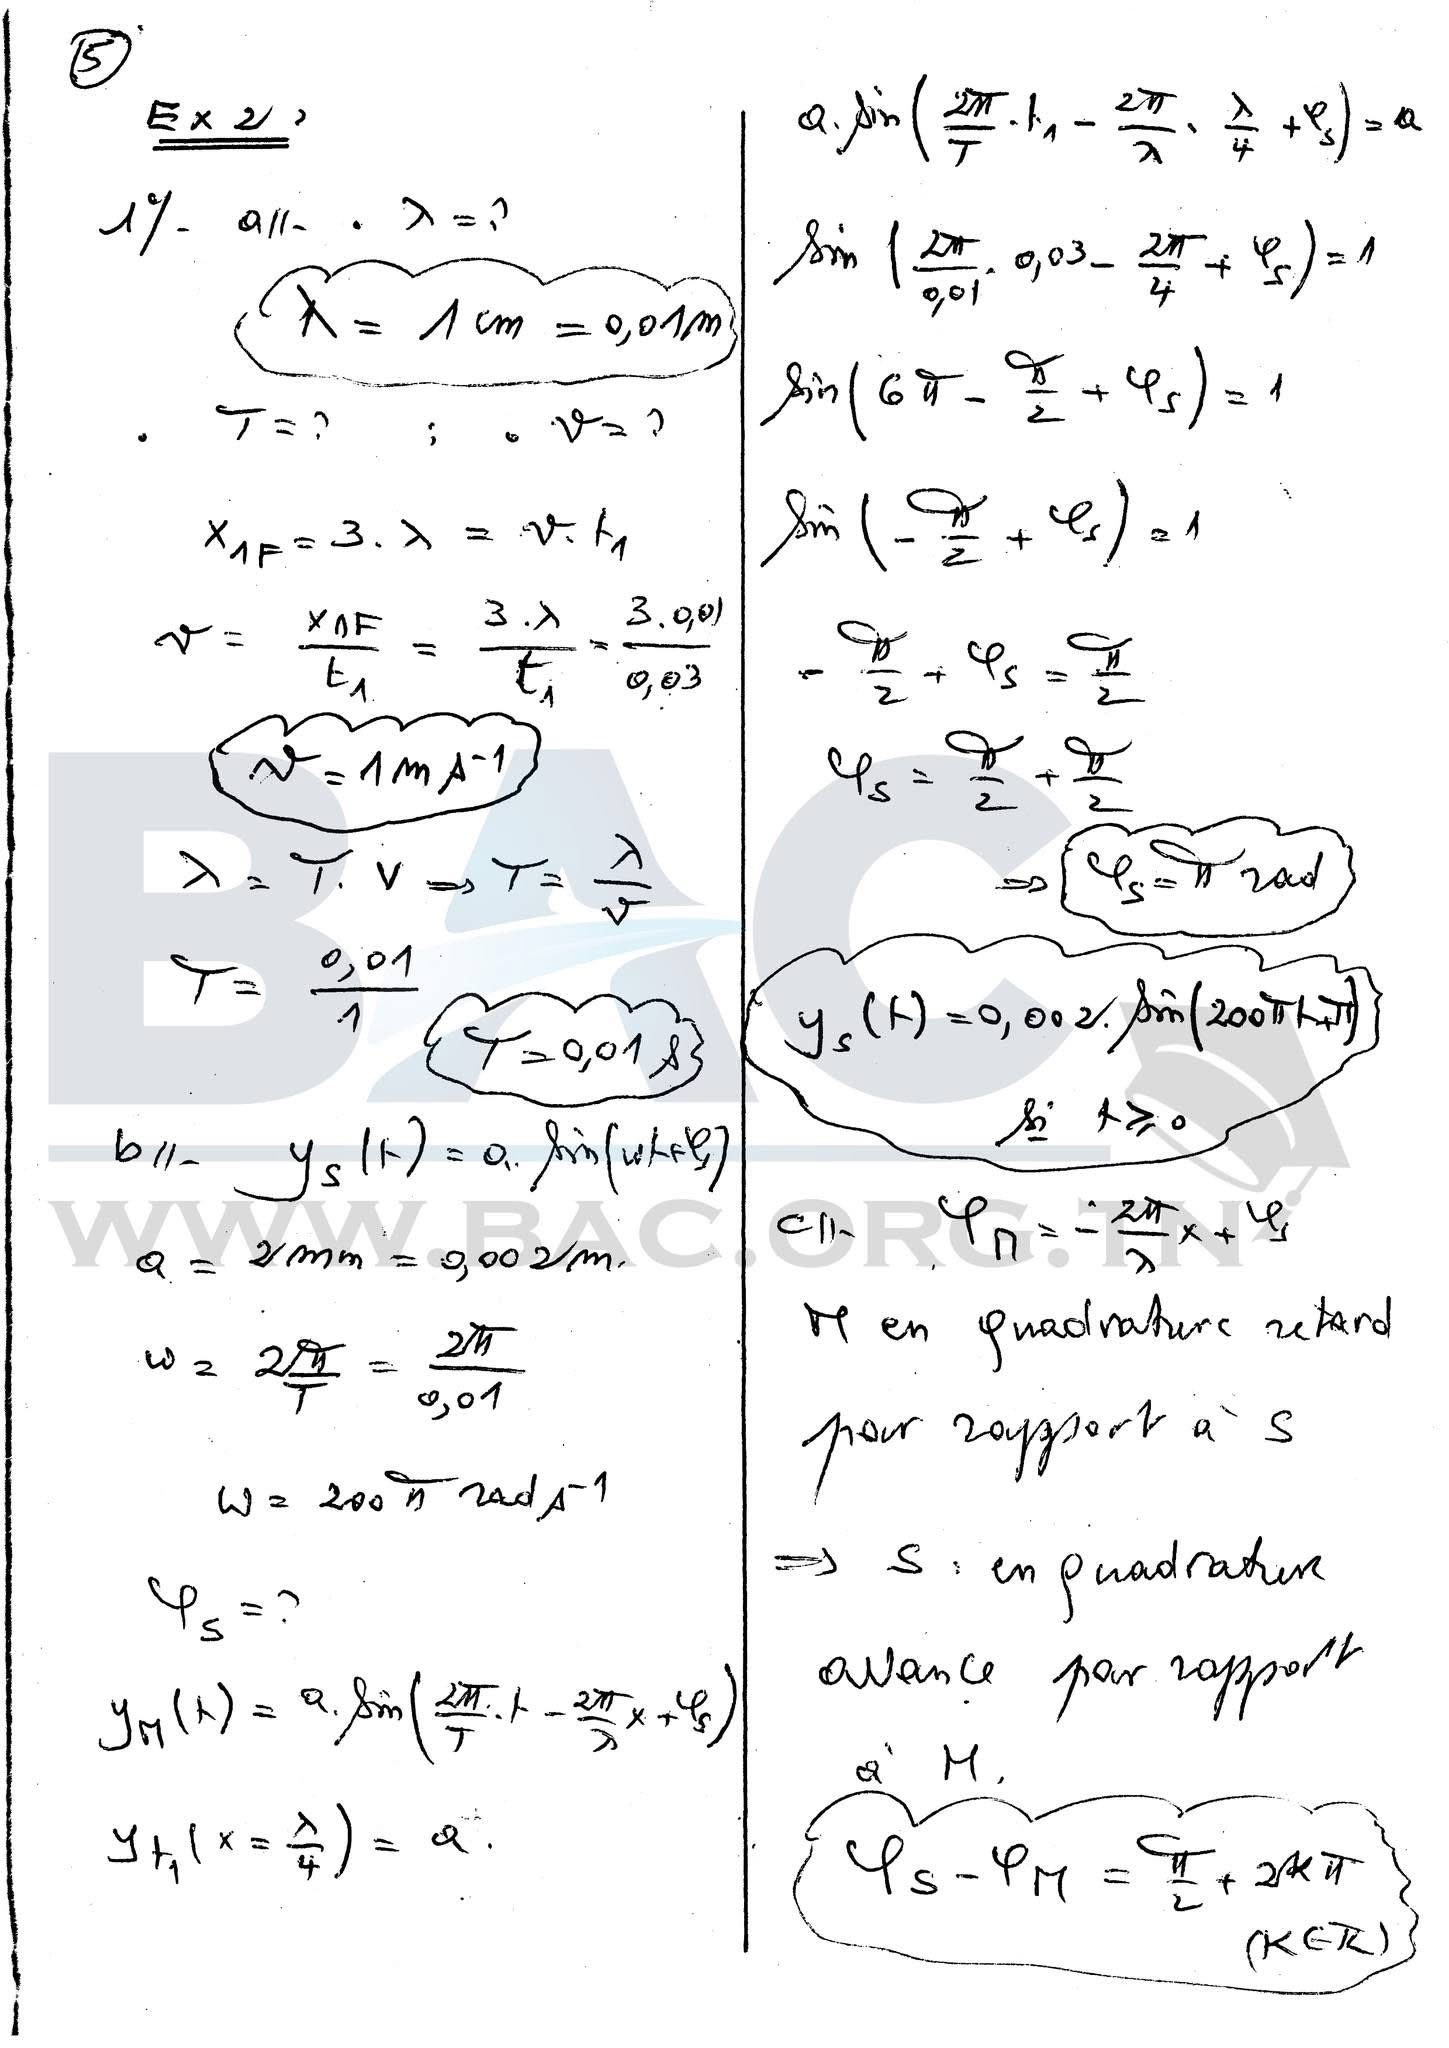 5
Ex 2 :
1°/- a//- . λ = ?
λ = 1 cm = 0,01 m
. T = ? ; . v = ?
x1F = 3 . λ = v . t1
v = x1F / t1 = 3 . λ / t1 = 3 . 0,01 / 0,03
v = 1 m s⁻¹
λ = T . V ⇒ T = λ / v
T = 0,01 / 1
T = 0,01 s
b//- ys(t) = a . sin(wt + φs)
a = 2 mm = 0,002 m.
w = 2π / T = 2π / 0,01
w = 200 π rad s⁻¹
φs = ?
yM(t) = a . sin(2π/T . t - 2π/λ x + φs)
yt1(x = λ/4) = a .
a . sin(2π/T . t1 - 2π/λ . λ/4 + φs) = a
sin(2π/0,01 . 0,03 - 2π/4 + φs) = 1
sin(6π - π/2 + φs) = 1
sin(- π/2 + φs) = 1
- π/2 + φs = π/2
φs = π/2 + π/2
⇒ φs = π rad
ys(t) = 0,002 . sin(200πt + π)
si t ≥ 0
c//- . φM = - 2π/λ x + φs
M en quadrature retard
par rapport à S
⇒ S : en quadrature
avance par rapport
à M.
φS - φM = π/2 + 2kπ
(K ∈ Z)
BAC
WWW.BAC.ORG.TN